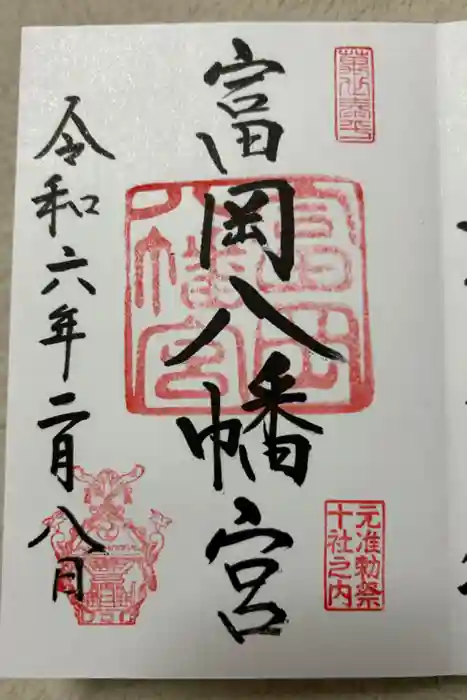 元准勅祭
十社之内
富岡八幡宮
富岡
八幡宮
令和六年二月八日